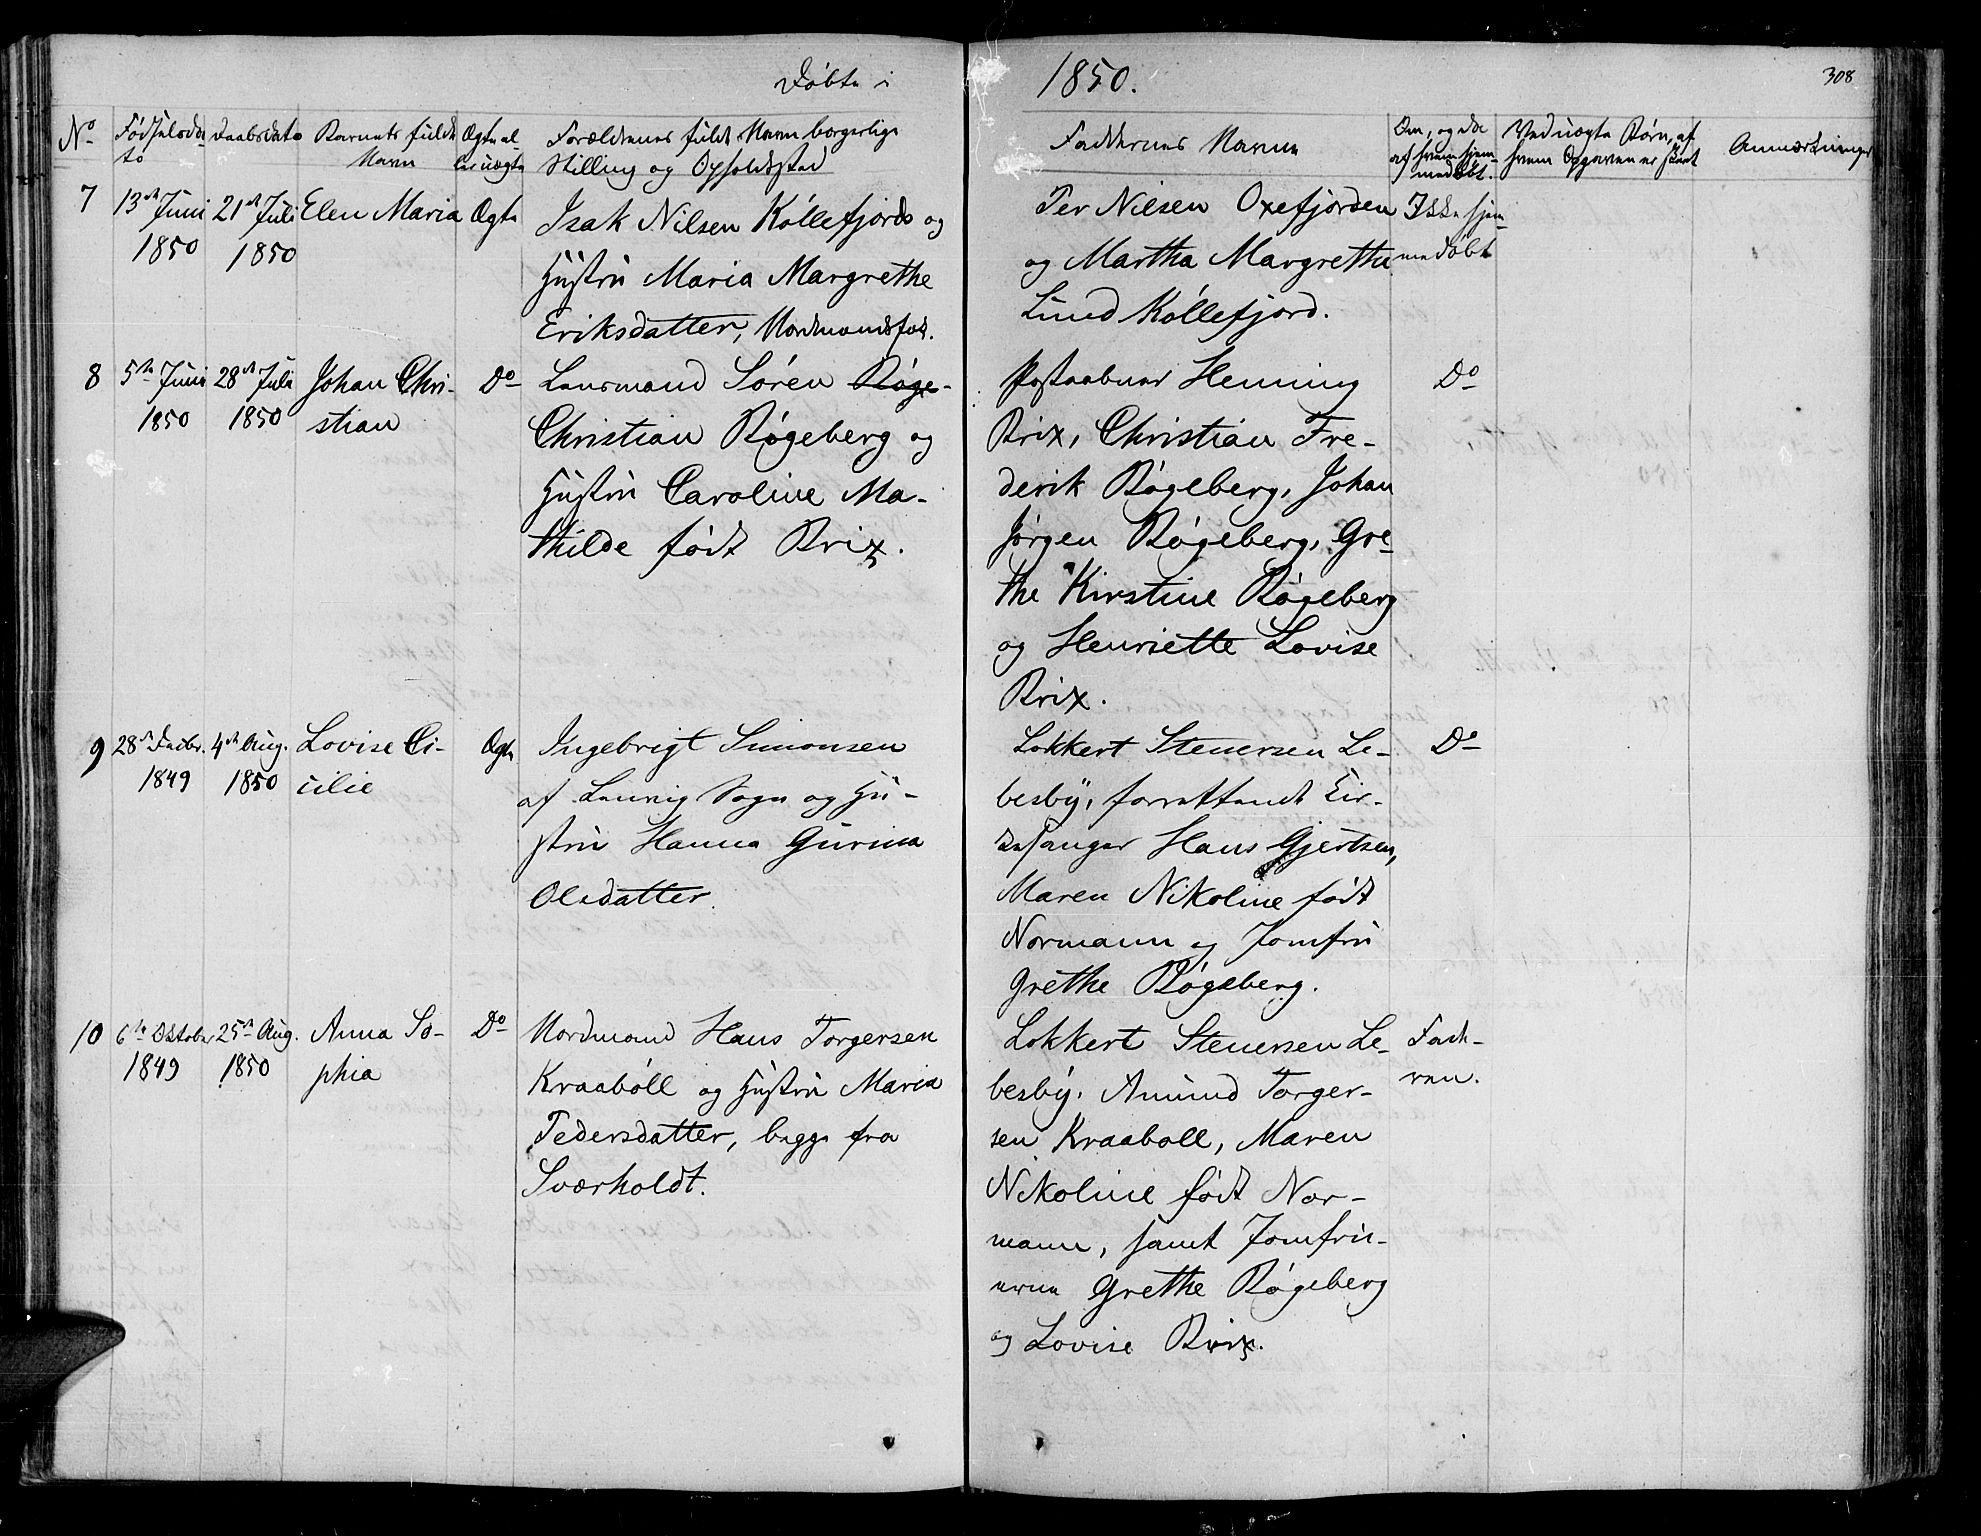 Döbte i 1850.
308
No
Födselsda-
to
Daabsdato
Barnets fulde
Navn
Ægte el-
ler uægte
Forældrenes fulde Navn borgerlige
Stilling og Opholdssted
Faddernes Navne
Om, og da
af hvem hjem-
medöbt.
Ved uægte Börn, af
hvem Opgaven er skeet
Anmærkninger
7
13de Juni
1850
21de Juli
1850
Elen Maria
Ægte
Isak Nilsen Köllefjord og
Hustru Maria Margrethe
Eriksdatter, Nordmandsfolk.
Per Nilsen Oxefjorden
og Martha Margrethe
Lund Köllefjord.
Ikke hjem-
medöbt
8
5te Juni
1850
28de Juli
1850
Johan Chri-
stian
Do
Lensmand Sören Röge-
Christian Rögeberg og
Hustru Caroline Ma-
thilde födt Brix.
Postaabner Henning
Brix, Christian Fre-
derik Rögeberg, Johan
Jörgen Rögeberg, Gre-
the Kirstine Rögeberg
og Henriette Lovise
Brix.
Do
9
28de Decbr.
1849
4de Aug.
1850
Lovise Ci-
cilie
Ægte
Ingebrigt Simonsen
af Lenvig Sogn og Hu-
stru Hanna Gurina
Olsdatter.
Lokkert Stenersen Le-
besby, forrettende Kir-
kesanger Hans Gjertsen,
Maren Nikoline födt
Normann og Jomfru
Grethe Rögeberg.
Do
10
6te Oktober
1849
25de Aug.
1850
Anna So-
phia
Do
Nordmand Hans Torgersen
Kraaböll og Hustru Maria
Pedersdatter, begge fra
Sværholdt.
Lokkert Stenersen Le-
besby. Amund Torger-
sen Kraaböll, Maren
Nikoline födt Nor-
mann, samt Jomfru-
erne Grethe Rögeberg
og Lovise Brix.
Fade-
ren.